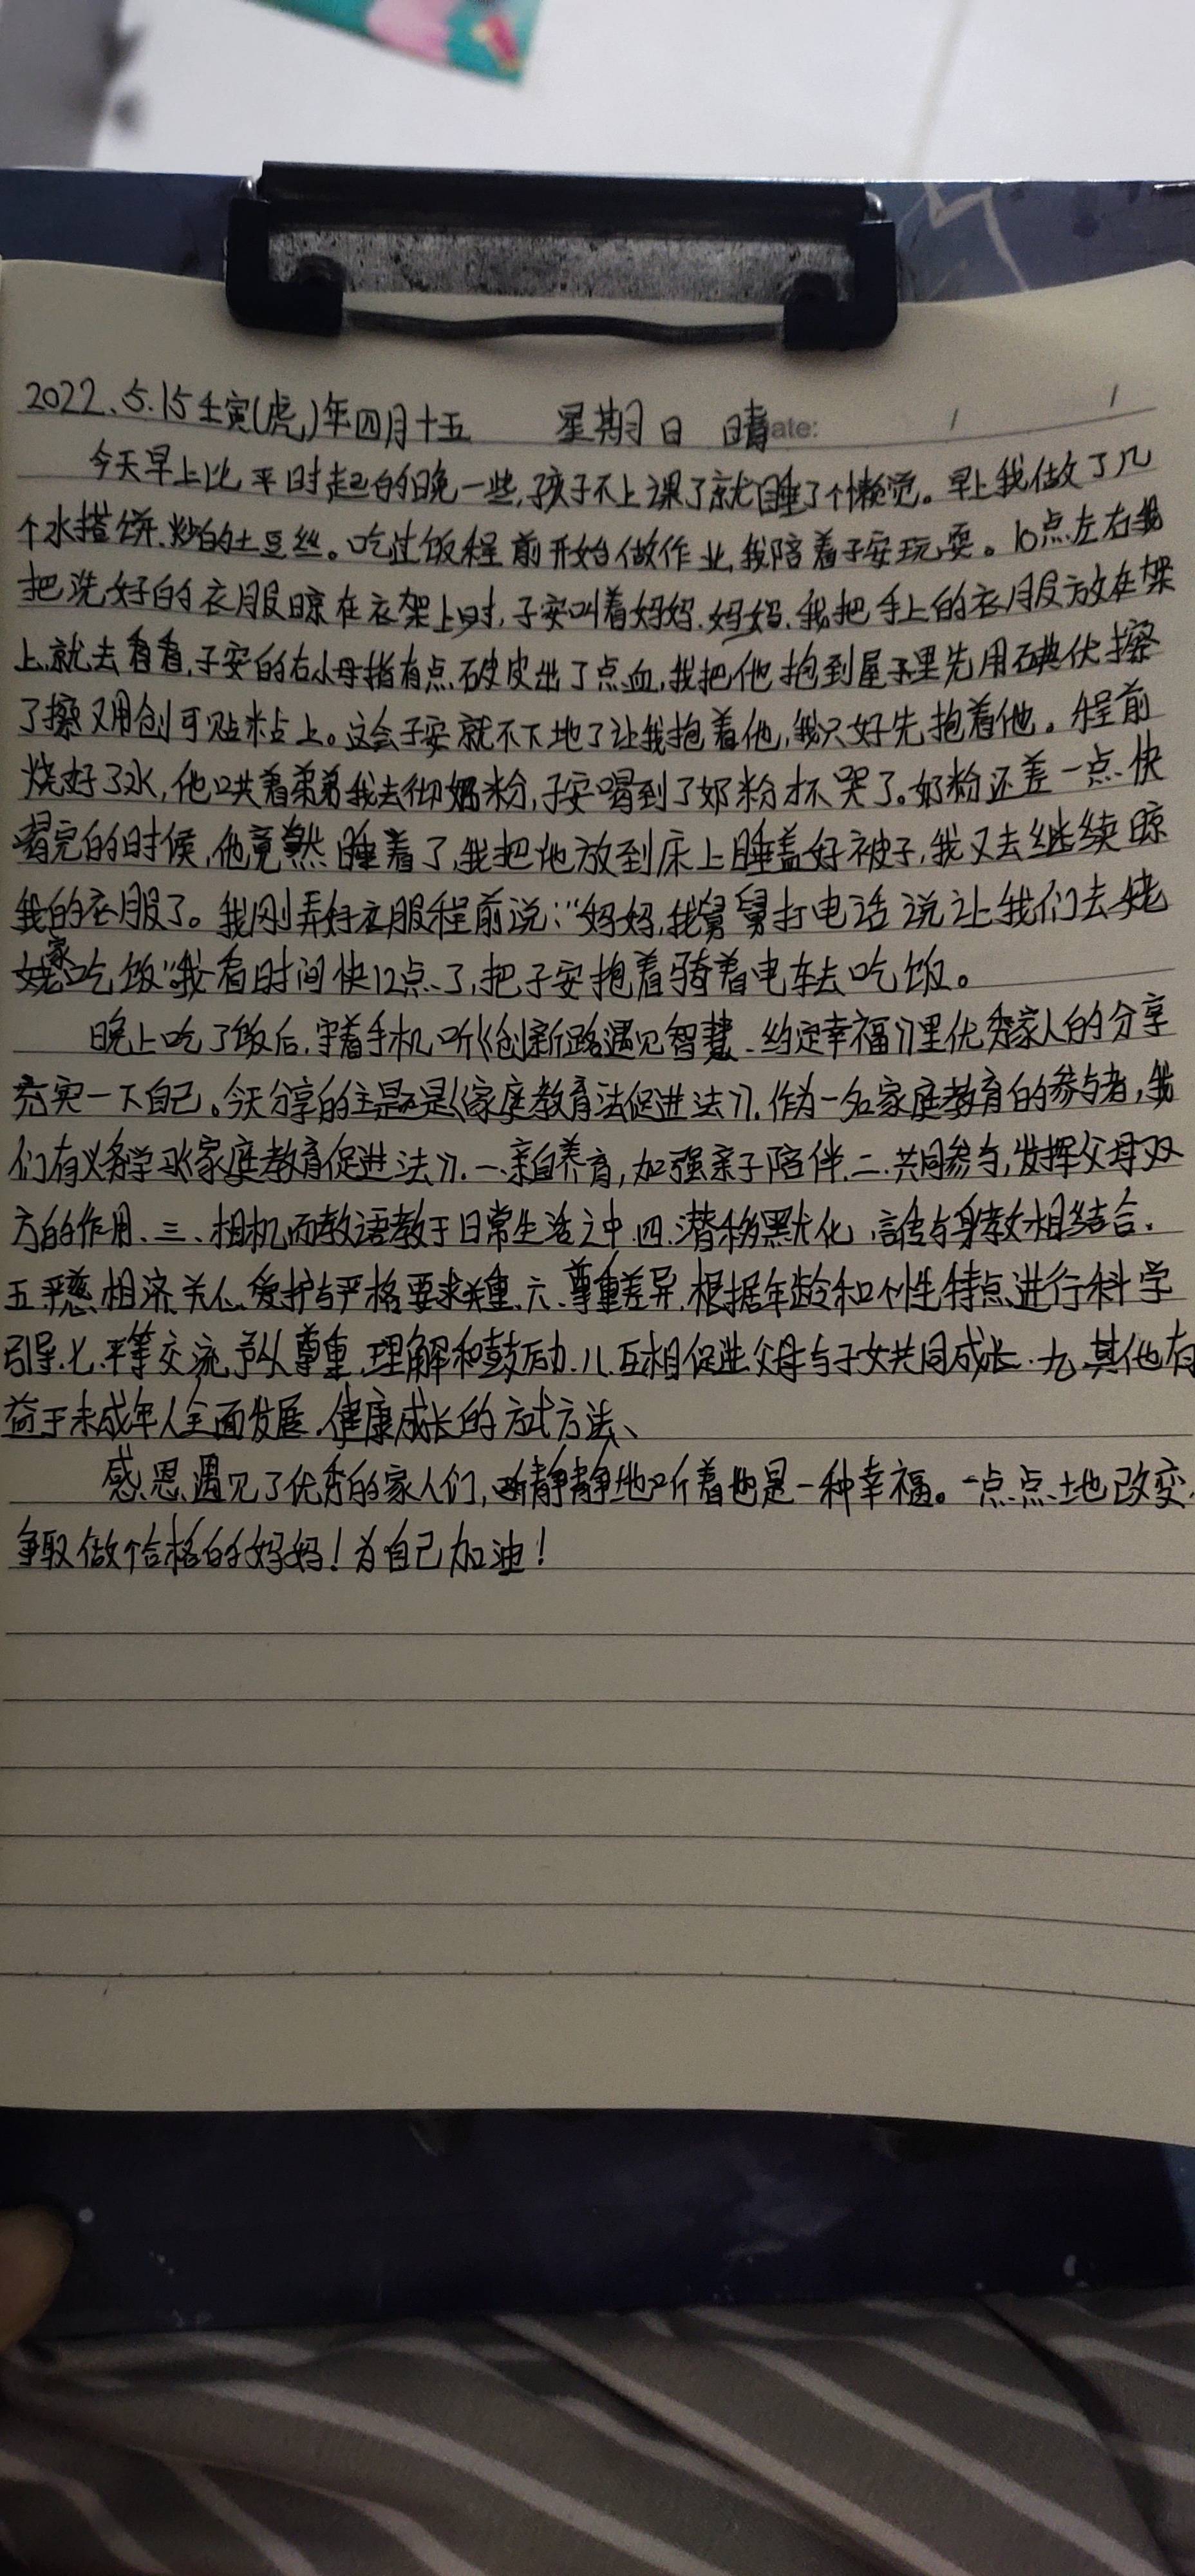 2022.5.15壬寅(虎)年四月十五 星期日 晴 ate:
今天早上比平时起的晚一些,孩子不上课了就睡了个懒觉。早上我做了几
个水搭饼.炒的土豆丝。吃过饭程前开始做作业,我陪着子安玩耍。10点左右我
把洗好的衣服晾在衣架上时,子安叫着妈妈.妈妈.我把手上的衣服放在架
上.就去看看,子安的右小母指有点破皮出了点血,我把他抱到屋子里先用碘伏擦
了擦又用创可贴粘上。这会子安就不下地了让我抱着他,我只好先抱着他。程前
烧好了水,他哄着弟弟我去彻奶粉,子安喝到了奶粉才不哭了。奶粉还差一点快
喝完的时候,他竟然睡着了,我把他放到床上睡盖好被子,我又去继续晾
我的衣服了。我刚弄好衣服程前说:"妈妈,我舅舅打电话说让我们去姥
姥家吃饭"我看时间快12点了,把子安抱着骑着电车去吃饭。
晚上吃了饭后,守着手机听《创新路遇见智慧.约定幸福》里优秀家人的分享
充实一下自己。今天分享的主题是《家庭教育法促进法》.作为一名家庭教育的参与者,我
们有义务学习《家庭教育促进法》.一.亲自养育,加强亲子陪伴.二.共同参与,发挥父母双
方的作用.三、相机而教语教于日常生活之中.四.潜移默化,言传与身教相结合.
五.严慈相济.关心爱护与严格要求并重.六.尊重差异.根据年龄和个性特点进行科学
引导.七.平等交流.予以尊重.理解和鼓励.八.互相促进父母与子女共同成长.九.其他有
益于未成年人全面发展.健康成长的方式方法、
感恩遇见了优秀的家人们,静静地听着也是一种幸福。一点点地改变,
争取做个合格的妈妈!为自己加油!